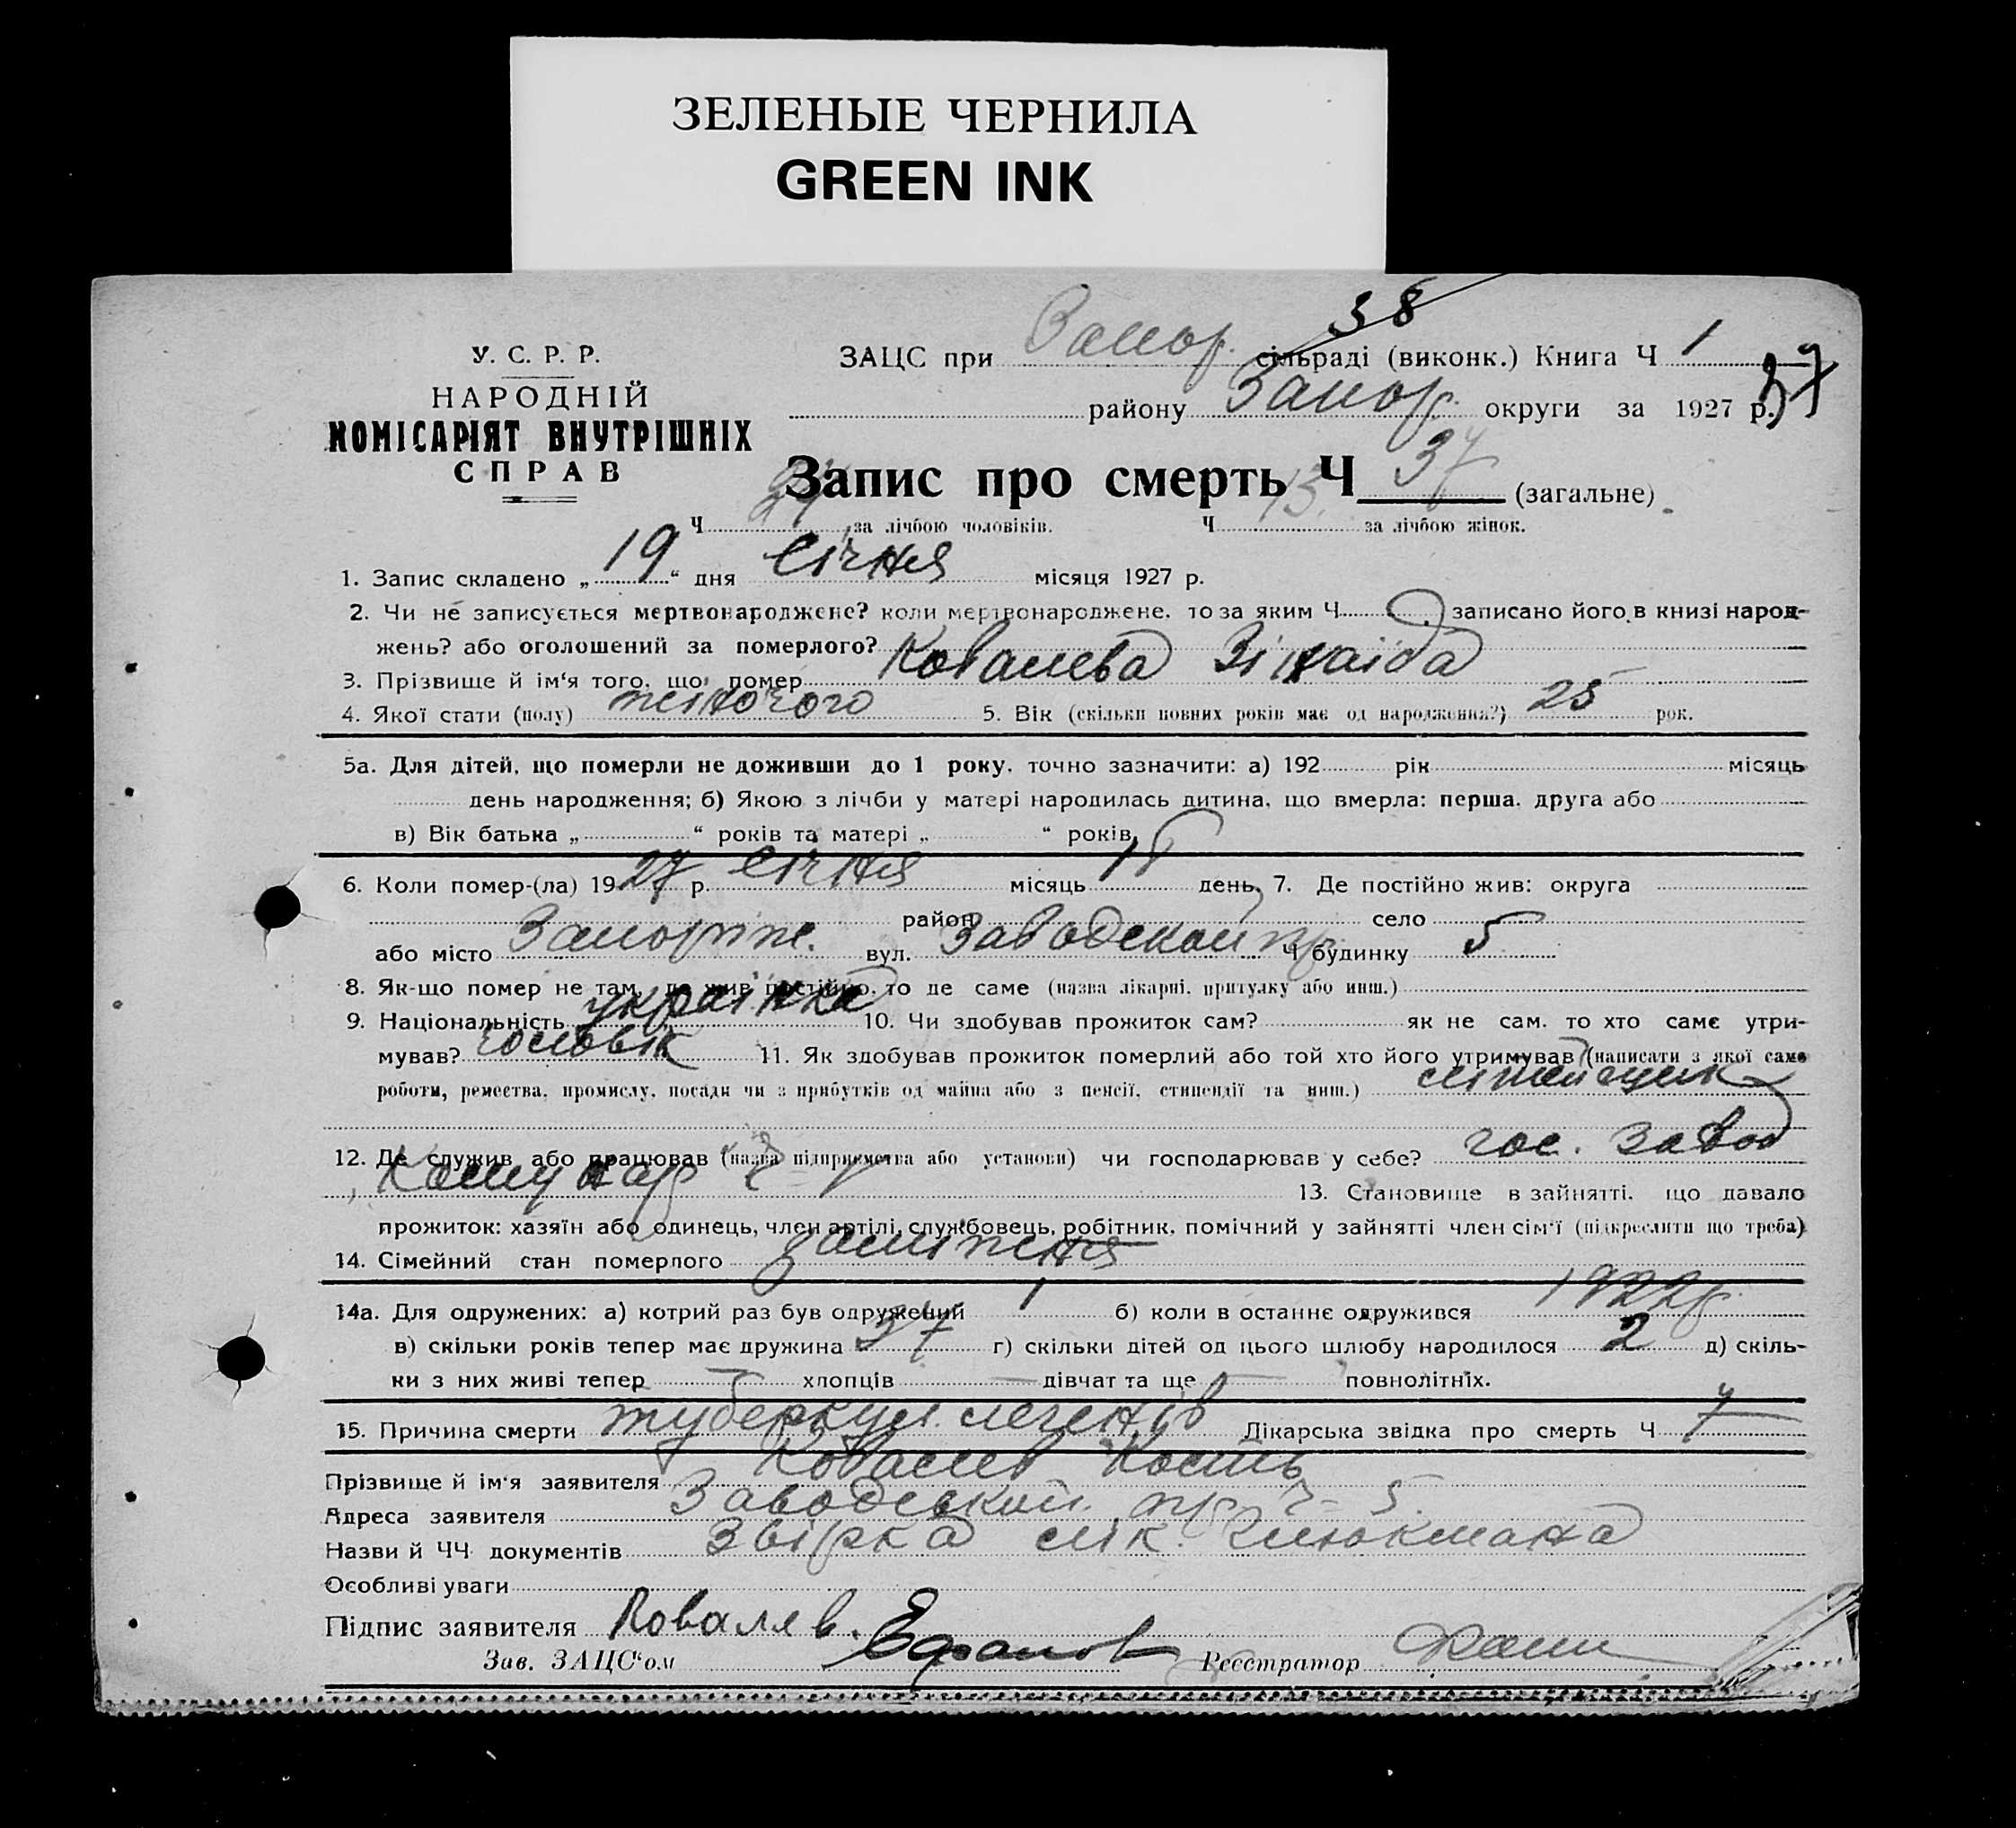 ЗЕЛЕНЫЕ ЧЕРНИЛА
GREEN INK
38
У. С. Р. Р.
НАРОДНІЙ
КОМІСАРІЯТ ВНУТРІШНІХ
СПРАВ
ЗАЦС при Запор. сільраді (виконк.) Книга Ч 1
району Запор. округи за 1927 р. 37
Запис про смерть Ч 37 (загальне)
Ч 24 за лічбою чоловіків. Ч 13 за лічбою жінок.
1. Запис складено „ 19 “ дня Січня місяця 1927 р.
2. Чи не записується мертвонароджене? коли мертвонароджене, то за яким Ч записано його в книзі народ-
жень? або оголошений за померлого?
3. Прізвище й ім‘я того, що помер Ковалева Зінаїда
4. Якої стати (полу) жіночого 5. Вік (скільки повних років має од народження?) 25 рок.
5а. Для дітей, що померли не доживши до 1 року, точно зазначити: а) 192 рік місяць
день народження; б) Якою з лічби у матері народилась дитина, що вмерла: перша, друга або
в) Вік батька „ “ років та матері „ “ років.
6. Коли помер-(ла) 1927 р. Січня місяць 18 день, 7. Де постійно жив: округа
район село
або місто Запоріж. вул. Заводской пр. Ч будинку 5
8. Як-що помер не там, де жив постійно, то де саме (назва лікарні, притулку або инш.)
9. Національність українка 10. Чи здобував прожиток сам? як не сам, то хто саме утри-
мував? чоловік 11. Як здобував прожиток померлий або той хто його утримував (написати з якої саме
роботи, ремества, промислу, посади чи з прибутків од майна або з пенсії, стипендії та инш.) літейщик
12. Де служив або працював (назва підприємства або установи) чи господарював у себе? гос. завод
Комунар 13. Становище в зайнятті, що давало
прожиток: хазяїн або одинець, член артілі, службовець, робітник, помічний у зайнятті член сім‘ї (підкреслити що треба)
14. Сімейний стан померлого заміжня
14а. Для одружених: а) котрий раз був одружений 1 б) коли в останнє одружився 1922р.
в) скільки років тепер має дружина 37 г) скільки дітей од цього шлюбу народилося 2 д) скіль-
ки з них живі тепер — хлопців — дівчат та ще — повнолітніх.
15. Причина смерти туберкул. легенів Лікарська звідка про смерть Ч 7
Прізвище й ім‘я заявителя Ковалев Кость
Адреса заявителя Заводськой пр ч- 5.
Назви й ЧЧ документів лік.
Особливі уваги
Підпис заявителя Ковалев.
Зав. ЗАЦС“ом
Реєстратор